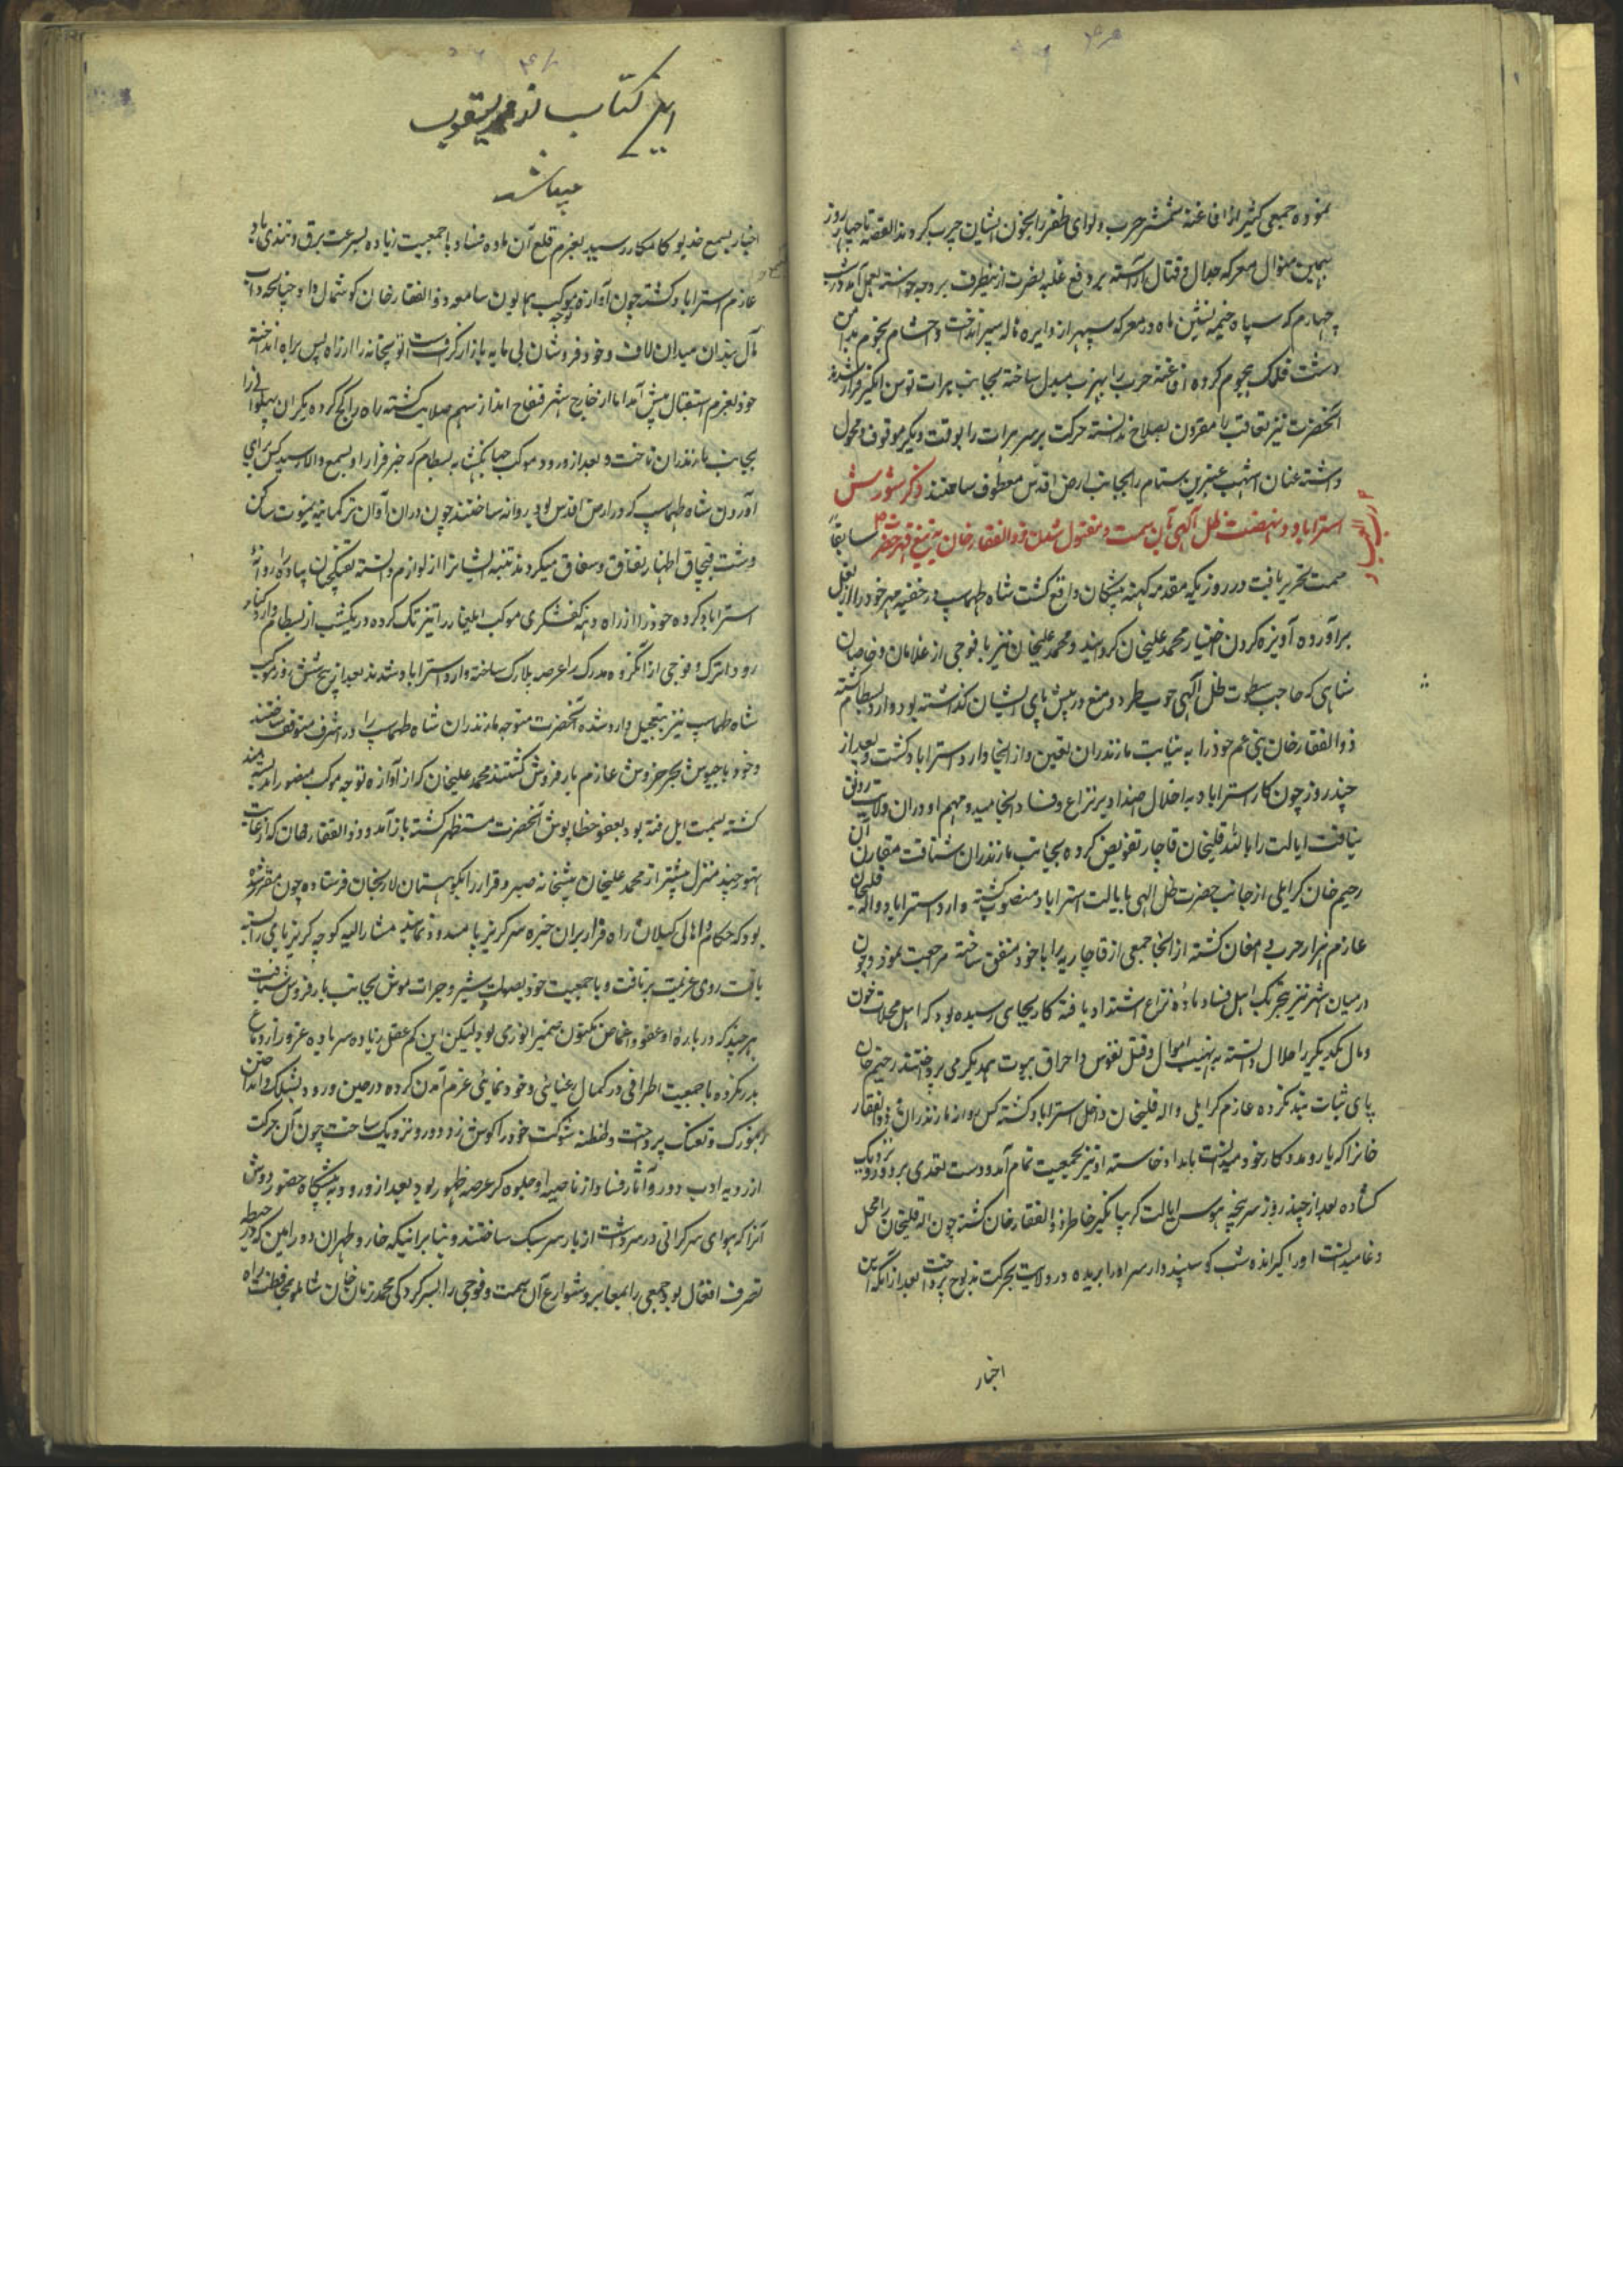 نموده جمعی کثیر از افاغنه شمشیر حرب و لوای ظفر را بخون ایشان چرب کردند القصه تا چهار روز
بهمین منوال معرکه جدال و قتال آراسته
چهارم که سپاه خیمه نشین ماه در معرکه سپهر از دایره ناله سپر انداخت و حشام نجوم
دشت فلک هجوم کرده افاغنه حرب را بهرب مبدل ساخته بجانب هرات توسن انگیز فرار شدند
آنحضرت نیز تعاقب را مقرون بصلاح ندانسته حرکت بر سر هرات را بوقت دیگر موقوف و محمول
داشته عنان اشهب عنبرین ستام را بجانب ارض اقدس معطوف ساختند ذکر شورش
استراباد و نهضت ظل الهی بآن سمت و مقتول شدن ذوالفقارخان به تیغ قهر سابقا
سمت تحریر یافت در روزیکه مقدمه کهنه مشکان واقع گشت شاه طهماسپ در خفیه مهر خود را از بغل
برآورده آویزه کردن اختیار محمد علیخان کردانید و محمد علیخان نیز با فوجی از غلامان و خاصان
شاهی که حاجب سطوت ظل الهی چوب طرد و منع در پیش پای ایشان گذاشته بود وارد بسطام گشته
ذوالفقارخان بنی عم خود را به نیابت مازندران تعیین و از آنجا وارد استراباد گشت و بعد از
چند روز چون کار استراباد به اخلال اضداد بر نزاع و فساد انجامید و مهم او در آن ولایت رونق
نیافت ایالت را بالله قلیخان قاجار تفویض کرده بجانب مازندران شتافت مقارن آن
رحیم خان کرایلی از جانب حضرت ظل الهی بایالت استراباد منصوب گشته وارد استراباد و الله قلیخان
عازم هزار جریب دامغان گشته از آنجا جمعی از قاجاریه را با خود متفق ساخته مراجعت نمود و چون
در میان شهر نیز بتحریک اهل فساد ماده نزاع اشتداد یافته کار بجایی رسیده بود که اهل محلات خون
و مال یکدیگر را حلال دانسته به نهب اموال و قتل نفوس و احراق بیوت همدیگر می پرداختند رحیم خان
پای ثبات بند نکرده عازم کرایلی و الله قلیخان داخل استراباد گشته کس بوازه مازندران و ذوالفقار
خانرا که یار و مددکار خود میدانست بامداد خواسته او نیز بجمعیت تمام آمد و دست تعدی بر دور و نزدیک
گشاده بعد از چند روز سرپنجه هوس ایالت گریبانگیر خاطر ذوالفقارخان گشته چون الله قلیخان را مخل
مدعا میدانست او را گیرانده شب گوسپندوار سر او را بریده در ولایت بحرکت مذبوح پرداخت بعد از آنکه این
اخبار
این کتاب از محمد یعقوب
میباشد
اخبار بسمع خدیو کامکار رسید بعزم قلع آن ماده فساد با جمعیت زیاده بسرعت برق و تندی باد
عازم استراباد گشته چون آوازه توجه موکب همایون سامعه ذوالفقارخان گوشمال داد چنانچه داب
مآل بندان میدان لاف و خود فروشان بی مایه بازار گزافست توپخانه را از راه پس براه انداخته
خود بعزم استقبال پیش آمد اما از خارج شهر قنفاح انداز سهم صلابت گشته راه را کج کرده یکران پهلو
بجانب مازندران تاخت و بعد از ورود موکب جهانبخش به بسطام که خبر فرار او بسمع والا رسید کس برای
آوردن شاه طهماسپ که در ارض اقدس بود روانه ساختند چون در آن اوان ترکمانیه یموت ساکن
دشت قبچاق اظهار نفاق و شقاق میکردند تنبیه ایشانرا از لوازم دانسته تفنگچیان پیاده را روانه
استراباد کرده خود از راه دهنه کفشگری موکب ایلغار را تیز تک کرده در یکشب از بسطام وارد کنار
رود اترک و فوجی از آنگروه مدرک را عرصه پلارک ساخته وارد استراباد شدند بعد از پنج شش روز موکب
شاه طهماسپ نیز بتعجیل وارد شده آنحضرت متوجه مازندران شاه طهماسپ را در اشرف متوقف ساختند
و خود با جیوش بحر خروش عازم بارفروش گشتند محمد علیخان که از آوازه توجه موکب منصور
گشته بسمت ایل رفته بود بعفو خطاپوش آنحضرت مستظهر گشته باز آمد و ذوالفقارخان که از غایت
تهور چند منزل پیشتر از محمد علیخان پیشخانه صبر و قرار را بکوهستان لاریجان فرستاده چون مقرر شده
بود که حکام و اهالی گیلان راه فرار بر آن خیره سر گریزپا مسدود نمایند مشارالیه کوچه گریز را بسته
یافت روی عزیمت برتافت و با جمعیت خود بصولت شیر و جرات موش بجانب بارفروش شتافت
هر چند که درباره او عفو و اغماض مکنون ضمیر انوری بود لیکن این کم عقل زیاده سر باده غرور از دماغ
بدر نکرده با جمعیت اطرافی در کمال رعنائی و خودنمائی عزم آمدن کرده در حین ورود بشلیک و انداختن
زنبورک و تفنک پرداخت و طنطنه شوکت خود را گوش زد دور و نزدیک ساخت چون آن حرکت
از رویه ادب دور و آثار فساد از ناصیه او جلوه گر عرصه ظهور بود بعد از ورود به پیشگاه حضور دوش
آنرا که هوای سرگرانی در سر داشت از بار سر سبک ساختند و بنابر اینکه خار و طهران و ورامین که در حیطه
تصرف افغان بود جمعی را بمعابر و شوارع آن سمت و فوجی را بسرکردگی محمد زمان خان شاملو بمحافظت راه